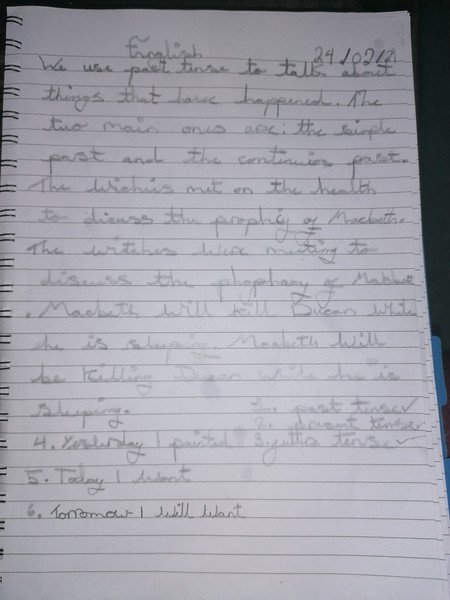 English 24/02/21
We use past tense to talk about
things that have happened. The
two main ones are: the simple
past and the continuios past.
The wichis met on the health
to dicuss the prophiy of Macbeth.
The witches were meeting to
discuss the phophacy of Mabbett
. Macbeth will kill Ducan while
he is sleeping. Macbeth will
be killing Ducan while he is
sleeping. 1. past tense ✓
2. present tense ✓
4. Yesterday I painted 3. future tense ✓
5. Today I want
6. Torromow I will want